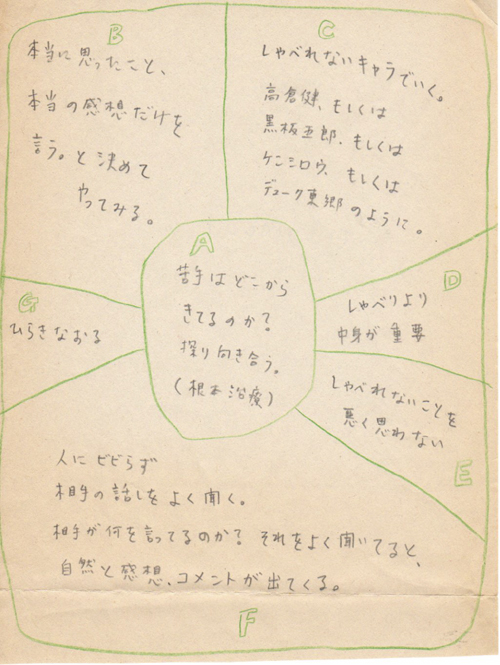 B
本当に思ったこと、
本当の感想だけを
言う。と決めて
やってみる。
C
しゃべれないキャラでいく。
高倉健、もしくは
黒板五郎、もしくは
ケンシロウ、もしくは
デューク東郷のように。
A
苦手はどこから
きてるのか?
探り向き合う。
(根本治療)
D
しゃべりより
中身が重要
G
ひらきなおる
しゃべれないことを
悪く思わない
E
人にビビらず
相手の話しをよく聞く。
相手が何を言ってるのか? それをよく聞いてると、
自然と感想、コメントが出てくる。
F